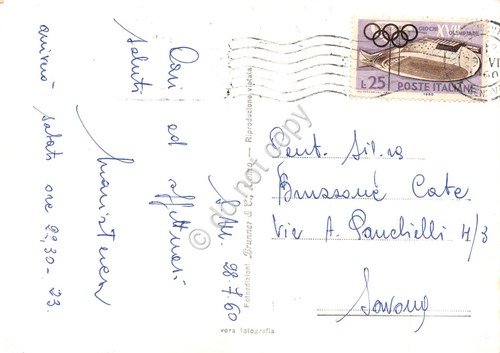 Cari ed affettuosi
saluti
Mariateresa
28.7.60
arriverò sabato ore 22,30 - 23.
Fotoedizioni Brunner & C., Como — Riproduzione vietata
vera fotografia
do not copy
GIOCHI XVII OLIMPIADE
L.25 POSTE ITALIANE
1960
Gent. Sig.ra
Bruzzone Cate
Via A. Ponchielli 4/3
Savona